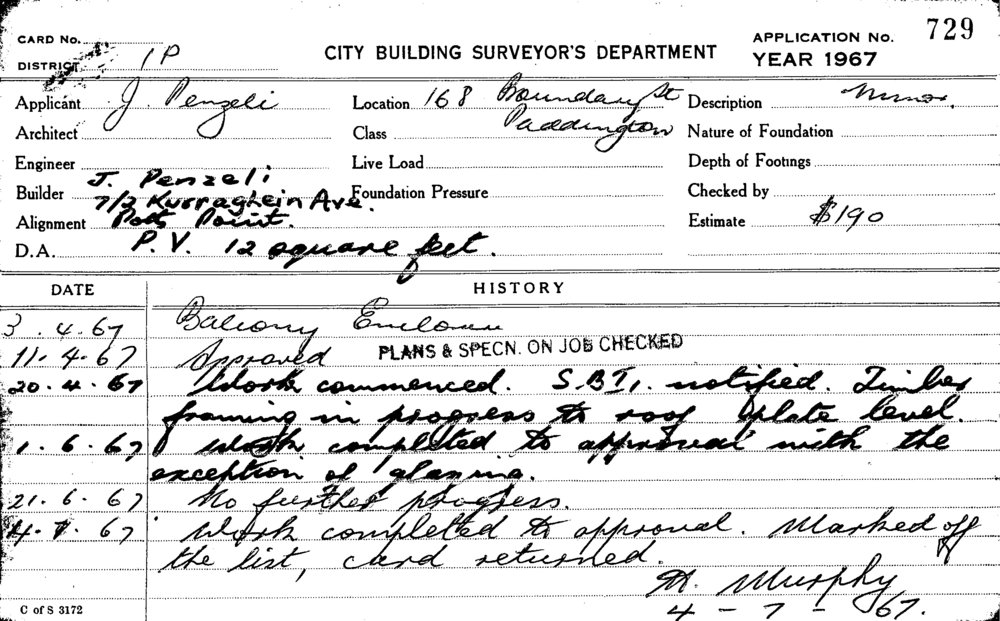 CARD No.
CITY BUILDING SURVEYOR'S DEPARTMENT
APPLICATION No. 729
DISTRICT 1P
YEAR 1967
Applicant J. Penzeli
Location 168 Boundary St
Paddington
Description Minor.
Architect
Class
Nature of Foundation
Engineer
Live Load
Depth of Footings
Builder J. Penzeli
7/2 Kurraghein Ave.
Foundation Pressure
Checked by
Alignment Potts Point.
Estimate $190
D.A. P.V. 12 square feet.
DATE HISTORY
3.4.67 Balcony Enclosure
11.4.67 Approved PLANS & SPECN. ON JOB CHECKED
20.4.67 Work commenced. notified. Timber
framing in progress to roof plate level.
1.6.67 Work completed to approval with the
exception of glazing.
21.6.67 No further progress.
4.7.67 Work completed to approval. Marked off
the list, card returned.
H. Murphy
4-7-67.
C of S 3172